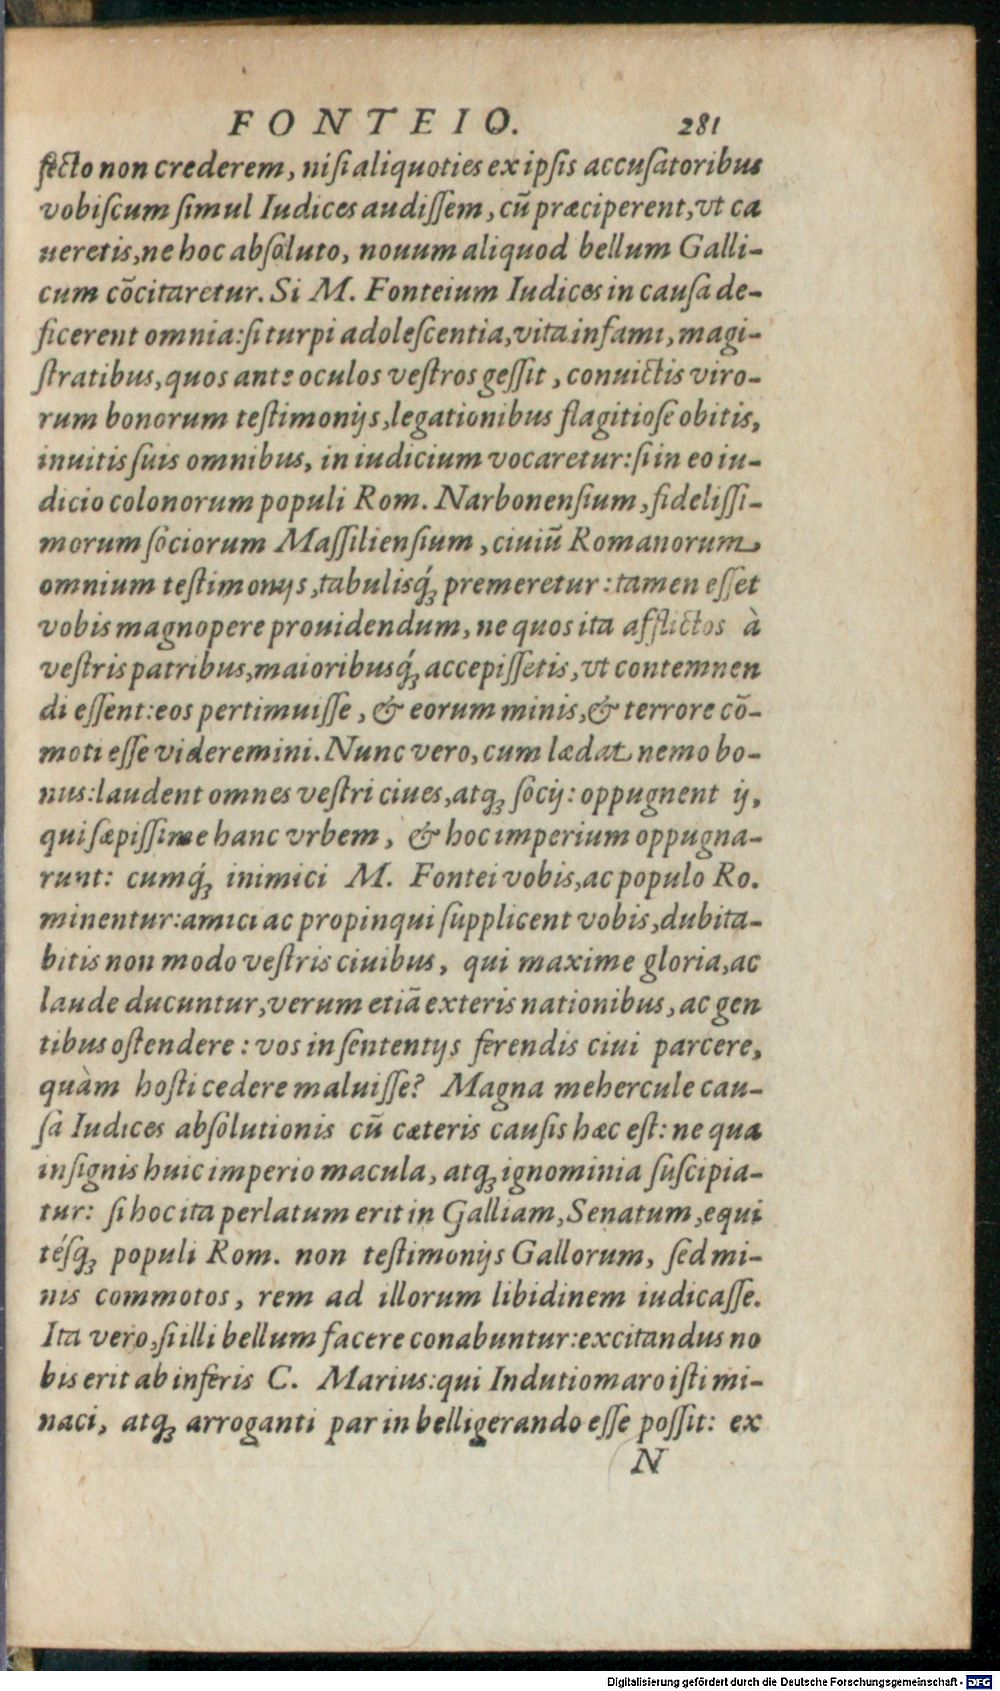 FONTEIO. 281
fecto non crederem, nisi aliquoties ex ipsis accusatoribus
vobiscum simul Iudices audissem, cũ præciperent, vt ca
ueretis, ne hoc absoluto, nouum aliquod bellum Galli-
cum cõcitaretur. Si M. Fonteium Iudices in causa de-
ficerent omnia: si turpi adolescentia, vita infami, magi-
stratibus, quos ante oculos vestros gessit, conuictis viro-
rum bonorum testimonijs, legationibus flagitiose obitis,
inuitis suis omnibus, in iudicium vocaretur: si in eo iu-
dicio colonorum populi Rom. Narbonensium, fidelissi-
morum sociorum Massiliensium, ciuiũ Romanorum,
omnium testimonijs, tabulisq́; premeretur: tamen esset
vobis magnopere prouidendum, ne quos ita afflictos à
vestris patribus, maioribusq́; accepissetis, vt contemnen
di essent: eos pertimuisse, & eorum minis, & terrore cõ-
moti esse videremini. Nunc vero, cum lædat nemo bo-
nus: laudent omnes vestri ciues, atq; socij: oppugnent ij,
qui sæpissime hanc vrbem, & hoc imperium oppugna-
runt: cumq́; inimici M. Fontei vobis, ac populo Ro.
minentur: amici ac propinqui supplicent vobis, dubita-
bitis non modo vestris ciuibus, qui maxime gloria, ac
laude ducuntur, verum etiã exteris nationibus, ac gen
tibus ostendere: vos in sententijs ferendis ciui parcere,
quàm hosti cedere maluisse? Magna mehercule cau-
sa Iudices absolutionis cũ cæteris causis hæc est: ne qua
insignis huic imperio macula, atq; ignominia suscipia-
tur: si hoc ita perlatum erit in Galliam, Senatum, equi
tésq; populi Rom. non testimonijs Gallorum, sed mi-
nis commotos, rem ad illorum libidinem iudicasse.
Ita vero, si illi bellum facere conabuntur: excitandus no
bis erit ab inferis C. Marius: qui Indutiomaro isti mi-
naci, atq; arroganti par in belligerando esse possit: ex
N
Digitalisierung gefördert durch die Deutsche Forschungsgemeinschaft - DFG